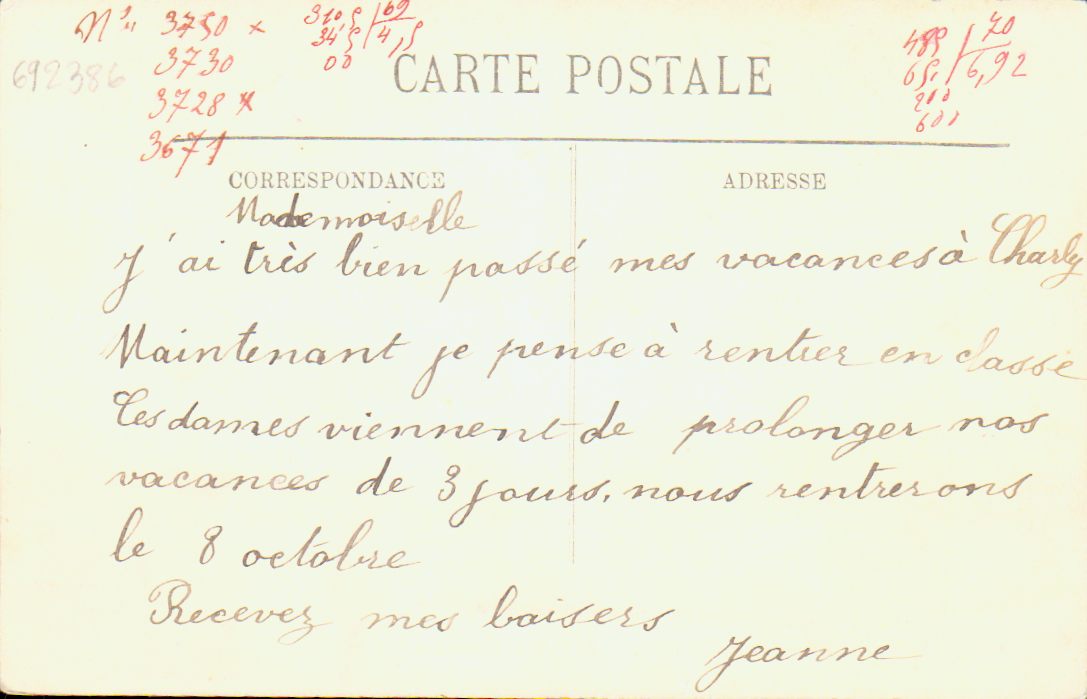 Nos 3750 x
3730
3728 x
3671
310,5 69
34 5 4,5
00
485 70
65. 6,92
200
600
692386
CARTE POSTALE
CORRESPONDANCE
ADRESSE
Mademoiselle
J'ai très bien passé mes vacances à Charly
Maintenant je pense à rentrer en classe
Ces dames viennent de prolonger nos
vacances de 3 jours, nous rentrerons
le 8 octobre
Recevez mes baisers
Jeanne